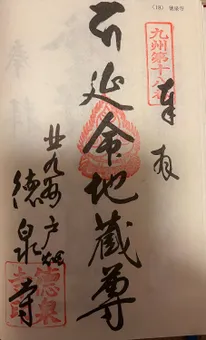 (18) 徳泉寺
九州第十八番
奉拝
延命地蔵尊
北九州戸畑
徳泉寺